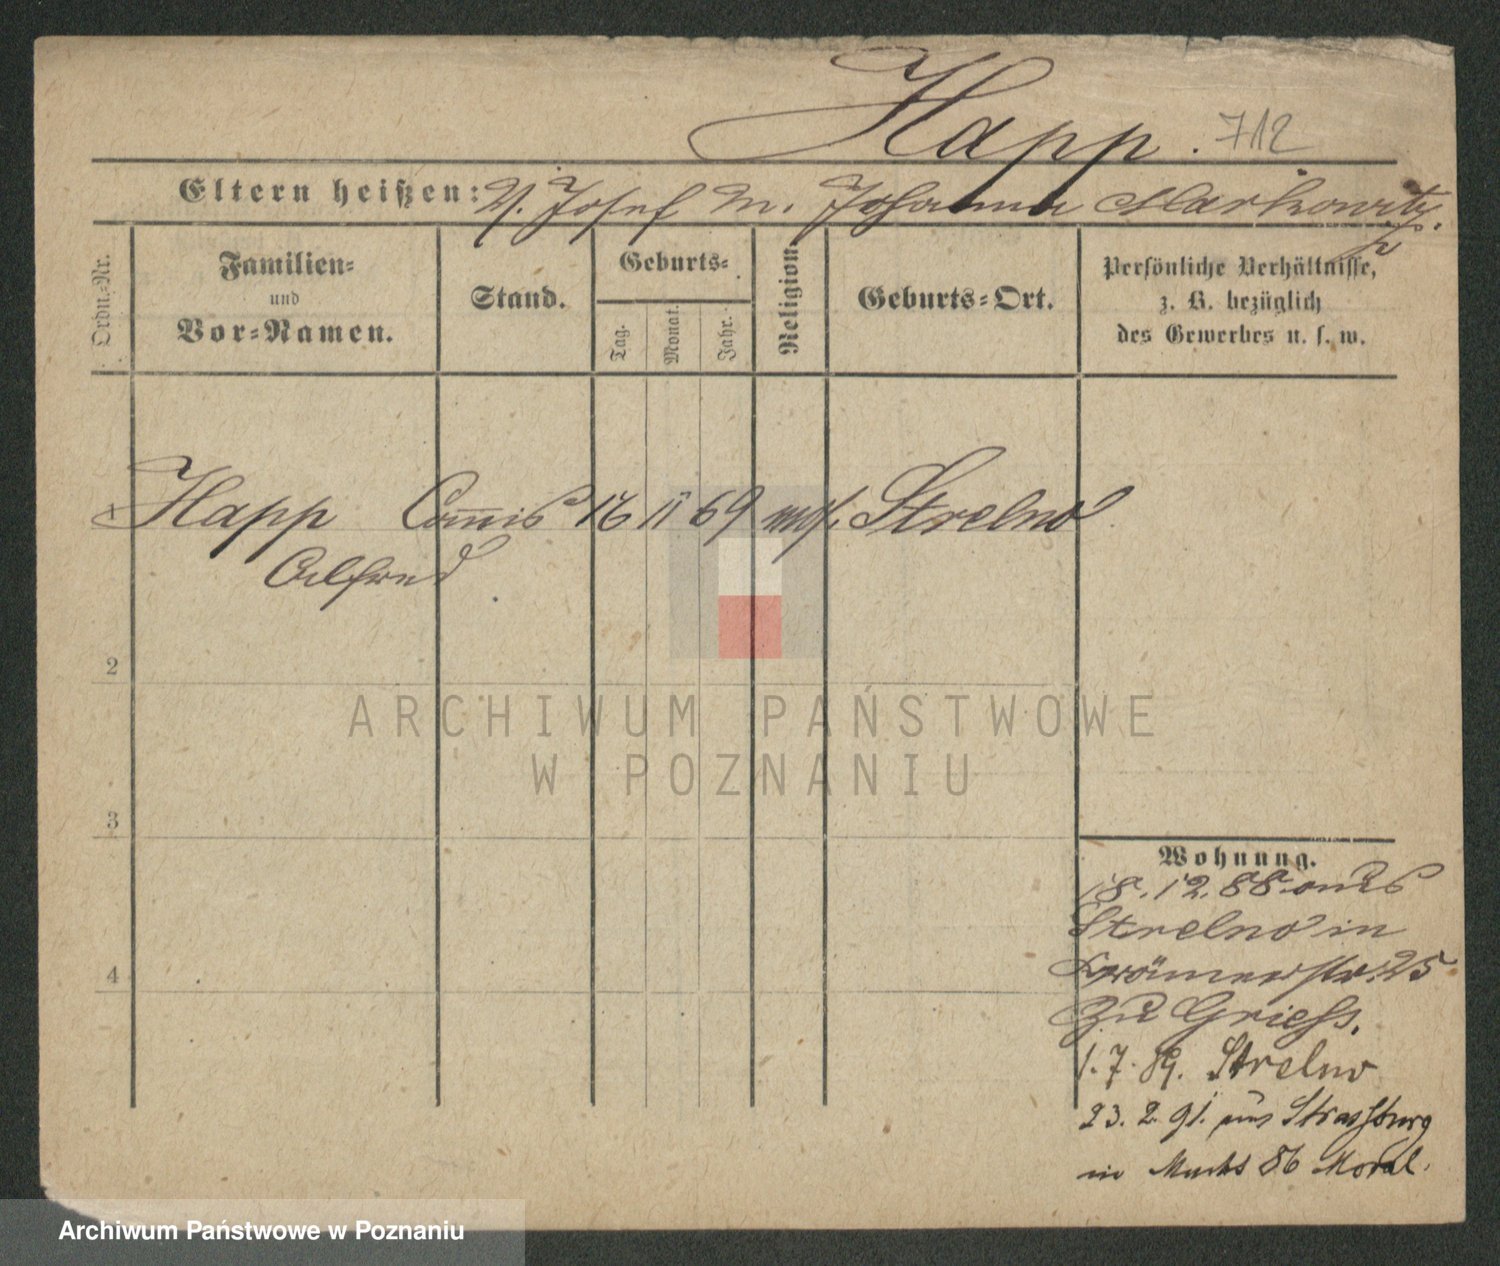 Happ. 712
Eltern heißen: V. Josef M. Johanna Markowitz
Ordn.-Nr.
Familien-
und
Vor-Namen.
Stand.
Geburts-
Tag.
Monat.
Jahr.
Religion.
Geburts-Ort.
Persönliche Verhältnisse,
z. B. bezüglich
des Gewerbes u. s. w.
1 Happ Com̅is 16 11 69 mos. Strelno
Alfred
2
3
4
Wohnung.
18.12.88 aus
Strelno in
Krämerstr. 25
zu Griess.
1.7.89. Strelno
23.2.91. aus Strassburg
in Markt 86 Moral.
ARCHIWUM PAŃSTWOWE
W POZNANIU
Archiwum Państwowe w Poznaniu